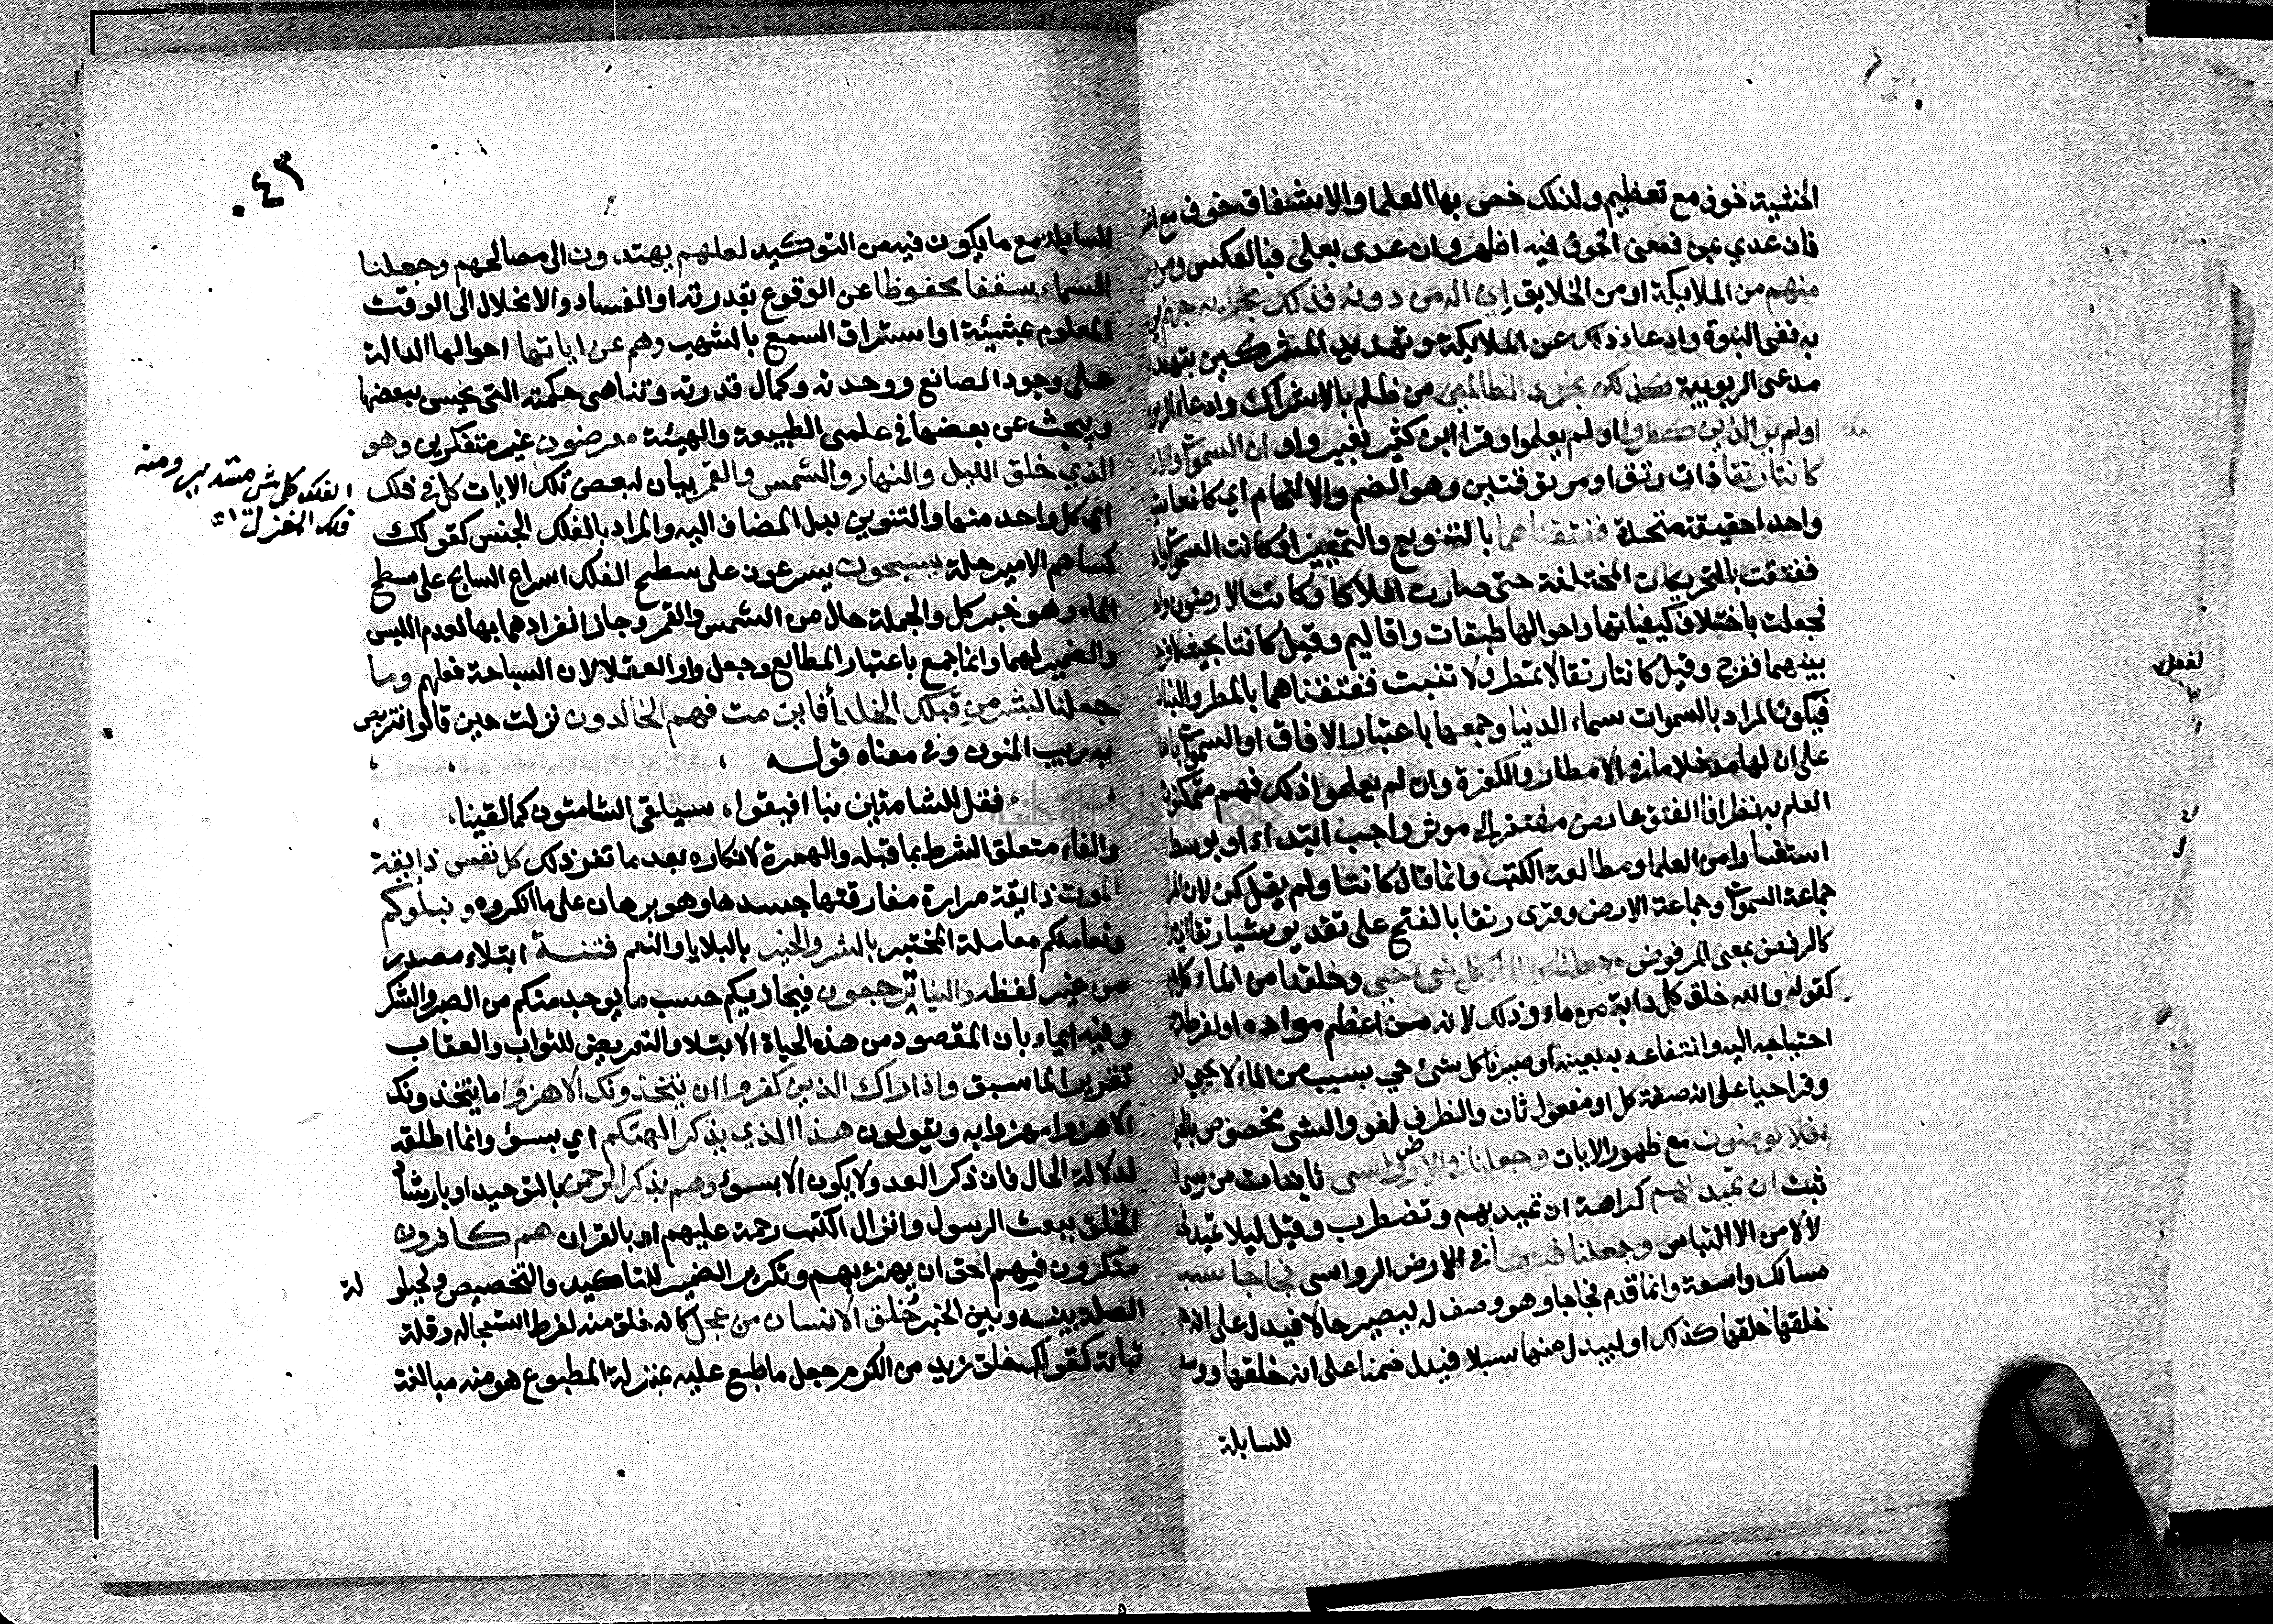 الخشية خوف مع تعظيم ولذلك خص بها العلما والاشفاق خوف مع
فان عدي بمن فمعنى الخوف فيه اظهر وان عدى بعلى فبالعكس ومن
منهم من الملايكة او من الخلايق اني اله من دونه فذلك نجزيه جهنم
به نفى النبوة وادعاء ذلك عن الملايكة وتهديد المشركين بتهديد
مدعى الربوبية كذلك نجزى الظالمين من ظلم بالاشراك وادعاء
اولم ير الذين كفروا اولم يعلموا وقرا ابن كثير بغير واو ان السموات
كانتا رتقا ذات رتق او مرتوقتين وهو الضم والالتحام اي كانتا
واحدا حقيقة متحدة ففتقناهما بالتنويع والتمييز او كانت السموات
ففتقت بالتحريكات المختلفة حتى صارت افلاكا وكانت الارضون
فجعلت باختلاف كيفياتها واحوالها طبقات واقاليم وقيل كانتا بحيث
بينهما ففرج وقيل كانتا رتقا لا تمطر ولا تنبت ففتقناهما بالمطر والنبات
فيكون المراد بالسموات سماء الدنيا وجمعها باعتبار الافاق او السموات
على ان لها مدخلا ما في الامطار والكفرة وان لم يعلموا ذلك فهم متمكنون
العلم به نظرا فان الفتق عارض مفتقر الى موثر واجب ابتداء او بوسط
استفسارا من العلما ومطالعة الكتب وانما قال كانتا ولم يقل كن لان
جماعة السموات وجماعة الارض وقرى رتقا بالفتح على تقدير شيا رتقا
كالرفض بمعنى المرفوض وجعلنا من الماء كل شئ حي وخلقنا من الماء كل
كقوله والله خلق كل دابة من ماء وذلك لانه من اعظم مواده او لفرط
احتياجه اليه وانتفاعه به بعينه او صيرنا كل شئ حي بسبب من الماء لا يحيى
وقرا حيا على انه صفة كل او مفعول ثان والظرف لغو والشى مخصوص
افلا يومنون مع ظهور الايات وجعلنا في الارض رواسى ثابتات من رسا
ثبت ان تميد بهم كراهة ان تميد بهم وتضطرب وقيل ليلا تميد
لا لامن الالتباس وجعلنا فيها في الارض او الرواسى فجاجا سبلا
مسالك واسعة وانما قدم فجاجا وهو وصف له ليصير حالا فيدل على انه
خلقها خلقها كذلك او ليبدل منها سبلا فيدل ضمنا على انه خلقها
للسابلة
٤٣
للسابلة مع ما يكون فيه من التوكيد لعلهم يهتدون الى مصالحهم وجعلنا
السماء سقفا محفوظا عن الوقوع بقدرته او الفساد والانحلال الى الوقت
المعلوم بمشيئة او استراق السمع بالشهب وهم عن اياتها احوالها الدالة
على وجود الصانع ووحدته وكمال قدرته وتناهى حكمته التى يحس ببعضها
ويبحث عن بعضها في علمى الطبيعة والهيئة معرضون غير متفكرين وهو
الذي خلق الليل والنهار والشمس والقمر بيان لبعض تلك الايات كل في فلك
اي كل واحد منها والتنوين بدل المضاف اليه والمراد بالفلك الجنس كقولك
كساهم الامير حلة يسبحون يسرعون على سطح الفلك اسراع السابح على سطح
الماء وهو خبر كل والجملة حال من الشمس والقمر وجاز انفرادهما بها لعدم اللبس
والضمير لهما وانما جمع باعتبار المطالع وجعل واو العقلا لان السباحة فعلهم وما
جعلنا لبشر من قبلك الخلد أفاين مت فهم الخالدون نزلت حين قالوا نتربص
به ريب المنون وفى معناه قوله
فقل للشامتين بنا افيقوا، سيلقى الشامتون كما لقينا،
والفاء متعلق الشرط بما قبله والهمزة لانكاره بعد ما تقرر ذلك كل نفس ذايقة
الموت ذايقة مرارة مفارقتها جسدها وهو برهان على ما انكروه ونبلوكم
ونعاملكم معاملة المختبر بالشر والخير بالبلايا والنعم فتنة ابتلاء مصدر
من غير لفظه والينا ترجعون فيجازيكم حسب ما يوجد منكم من الصبر والشكر
وفيه ايماء بان المقصود من هذه الحياة الابتلا والتعريض للثواب والعقاب
تقريرا لما سبق واذا راك الذين كفروا ان يتخذونك الا هزوا ما يتخذونك
الا هزوا مهزوا به ويقولون هذا الذي يذكر الهتكم اي بسوء وانما اطلقه
لدلالة الحال فان ذكر العدو لا يكون الا بسوء وهم بذكر الرحمن بالتوحيد او بارشاد
الخلق ببعث الرسول وانزال الكتب رحمة عليهم او بالقران هم كافرون
منكرون فهم احق ان يهزئ بهم وتكرير الضمير للتاكيد والتخصيص ولحيلولة
الصلة بينه وبين الخبر خلق الانسان من عجل كانه خلق منه لفرط استعجاله وقلة
ثباته كقولك خلق زيد من الكرم جعل ما طبع عليه بمنزلة المطبوع هو منه مبالغة
الفلك كل شى مستدير ومنه
فلكة المغزل